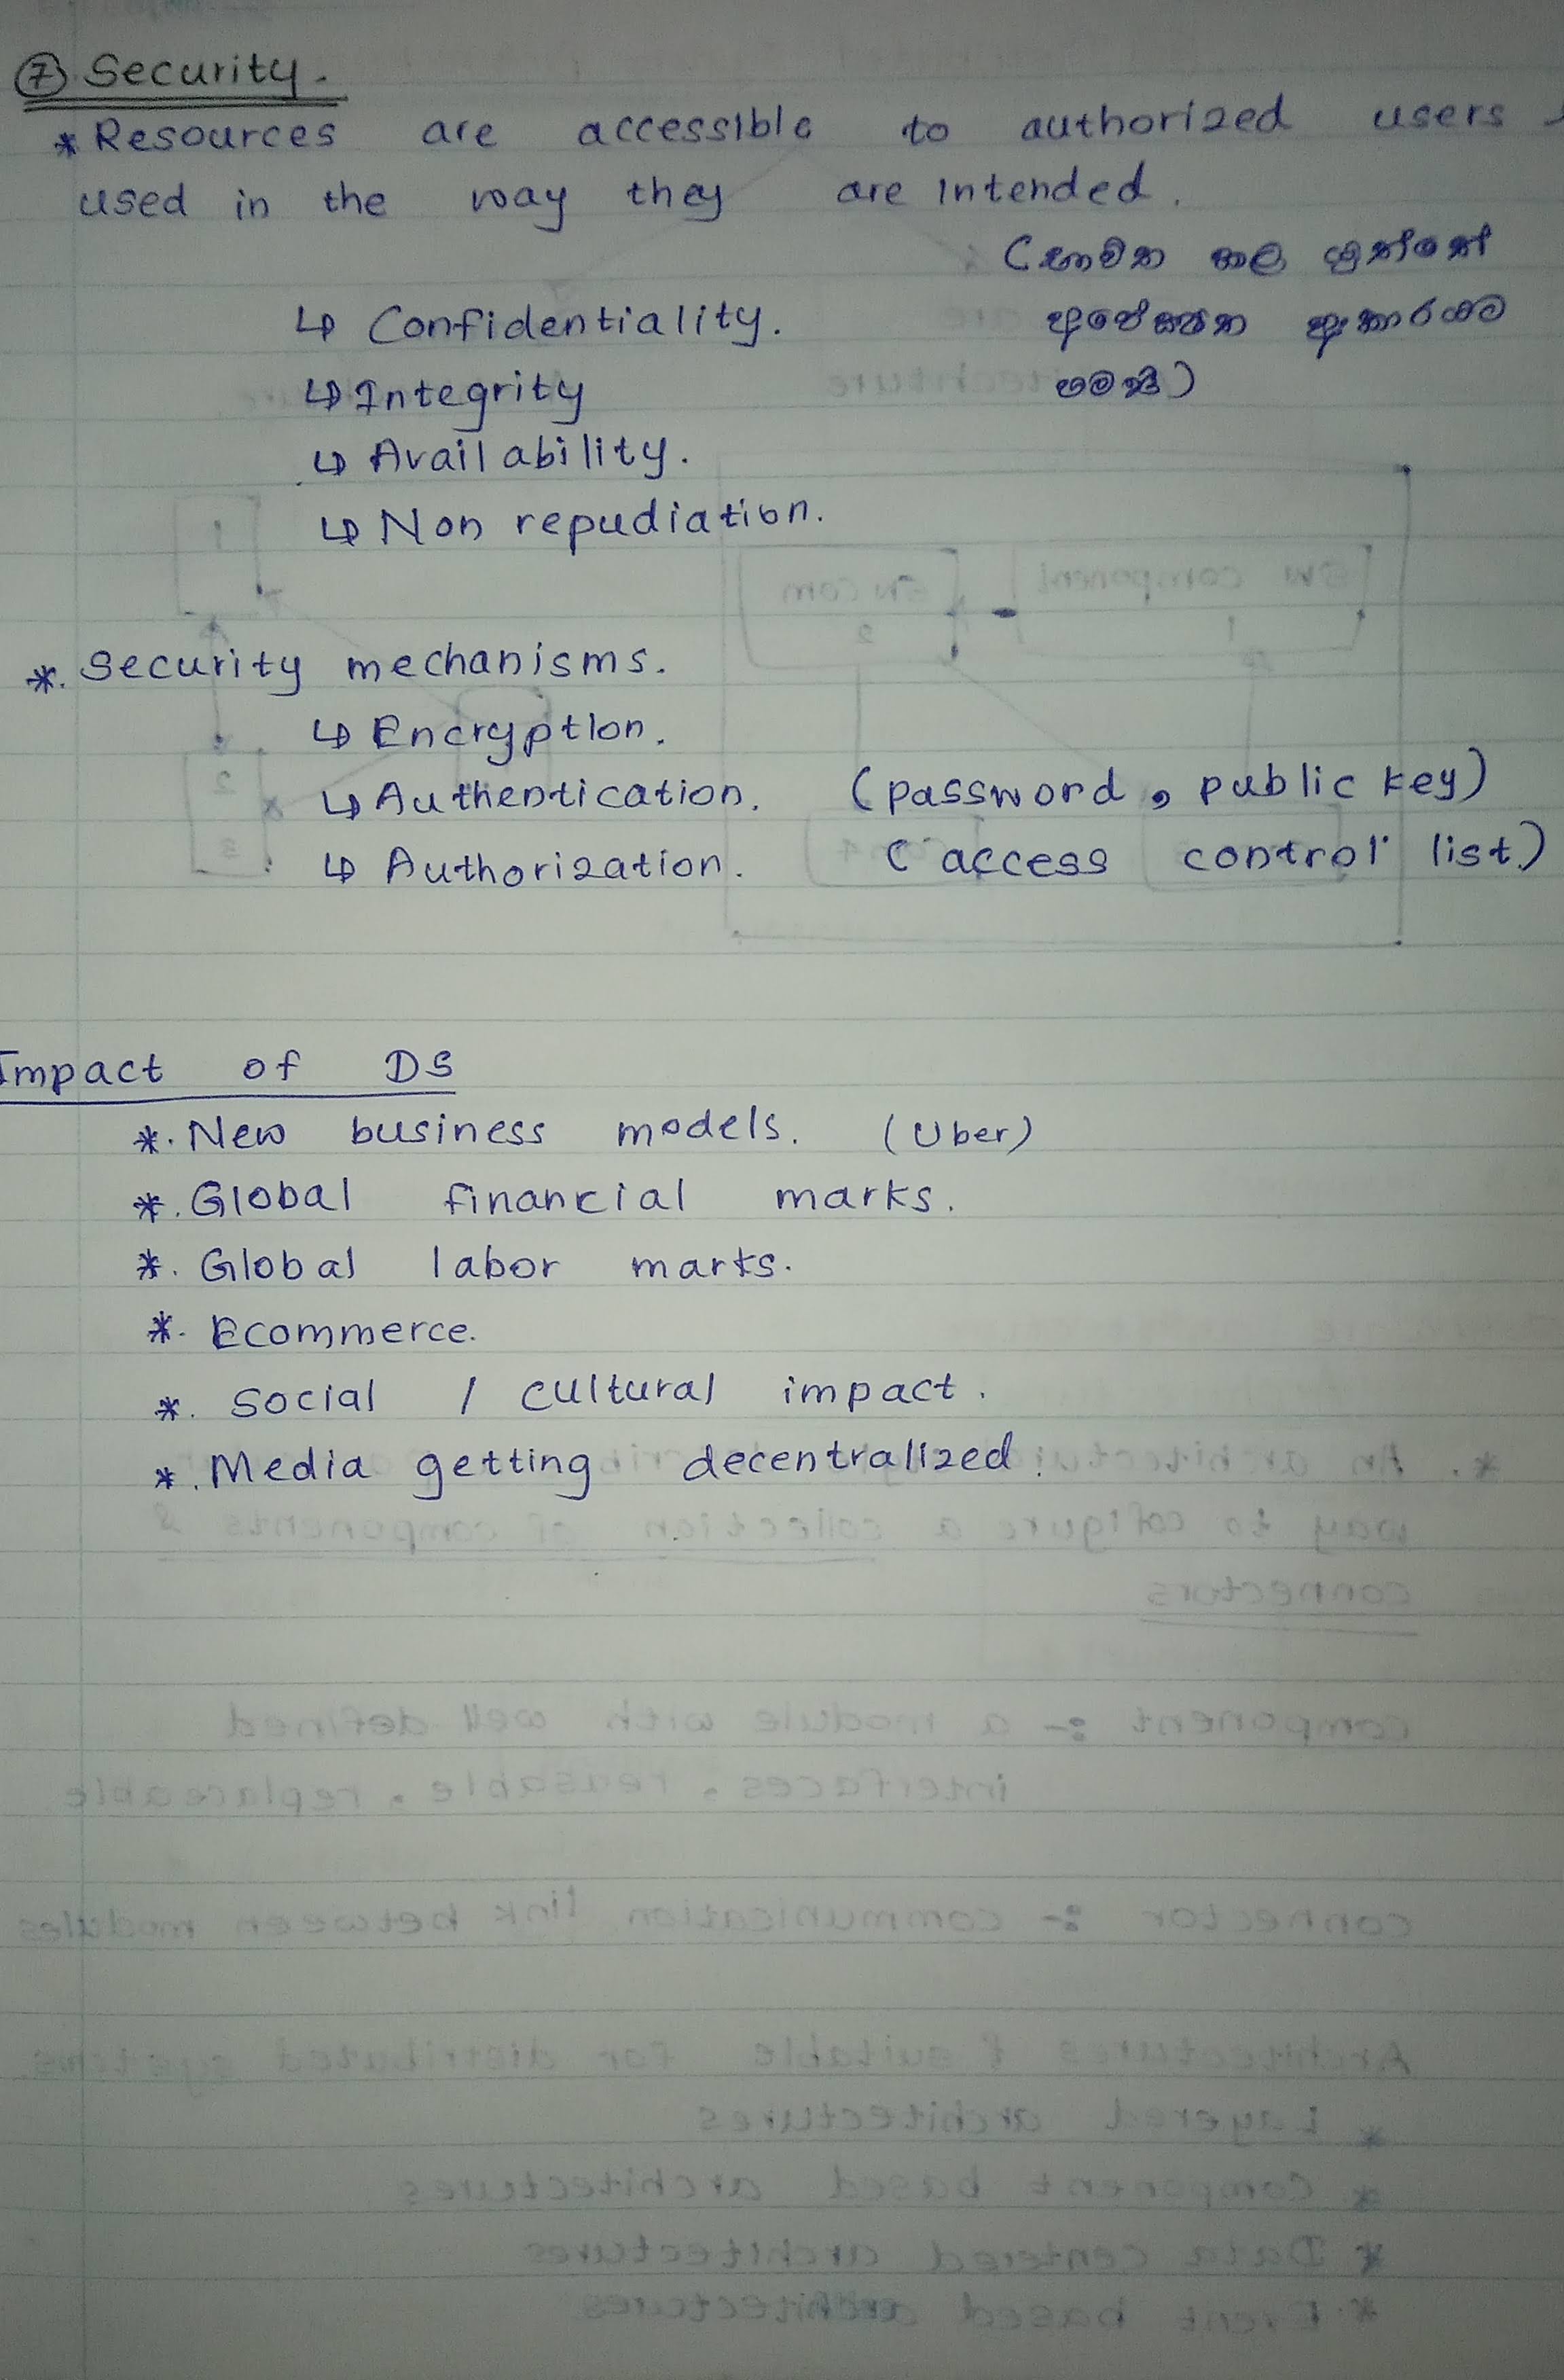 ⑦ Security.
* Resources are accessible to authorized users
used in the way they are intended.
(භාවිත කල යුත්තේ
↳ Confidentiality. අපේක්ෂිත ආකාරයට
↳ Integrity පමණි)
↳ Availability.
↳ Non repudiation.
*. Security mechanisms.
↳ Encryption.
↳ Authentication. (password, public key)
↳ Authorization. (access control list)
Impact of DS
*. New business models. (Uber)
*. Global financial marks.
*. Global labor marks.
*. Ecommerce.
*. Social / cultural impact.
*. Media getting decentralized.